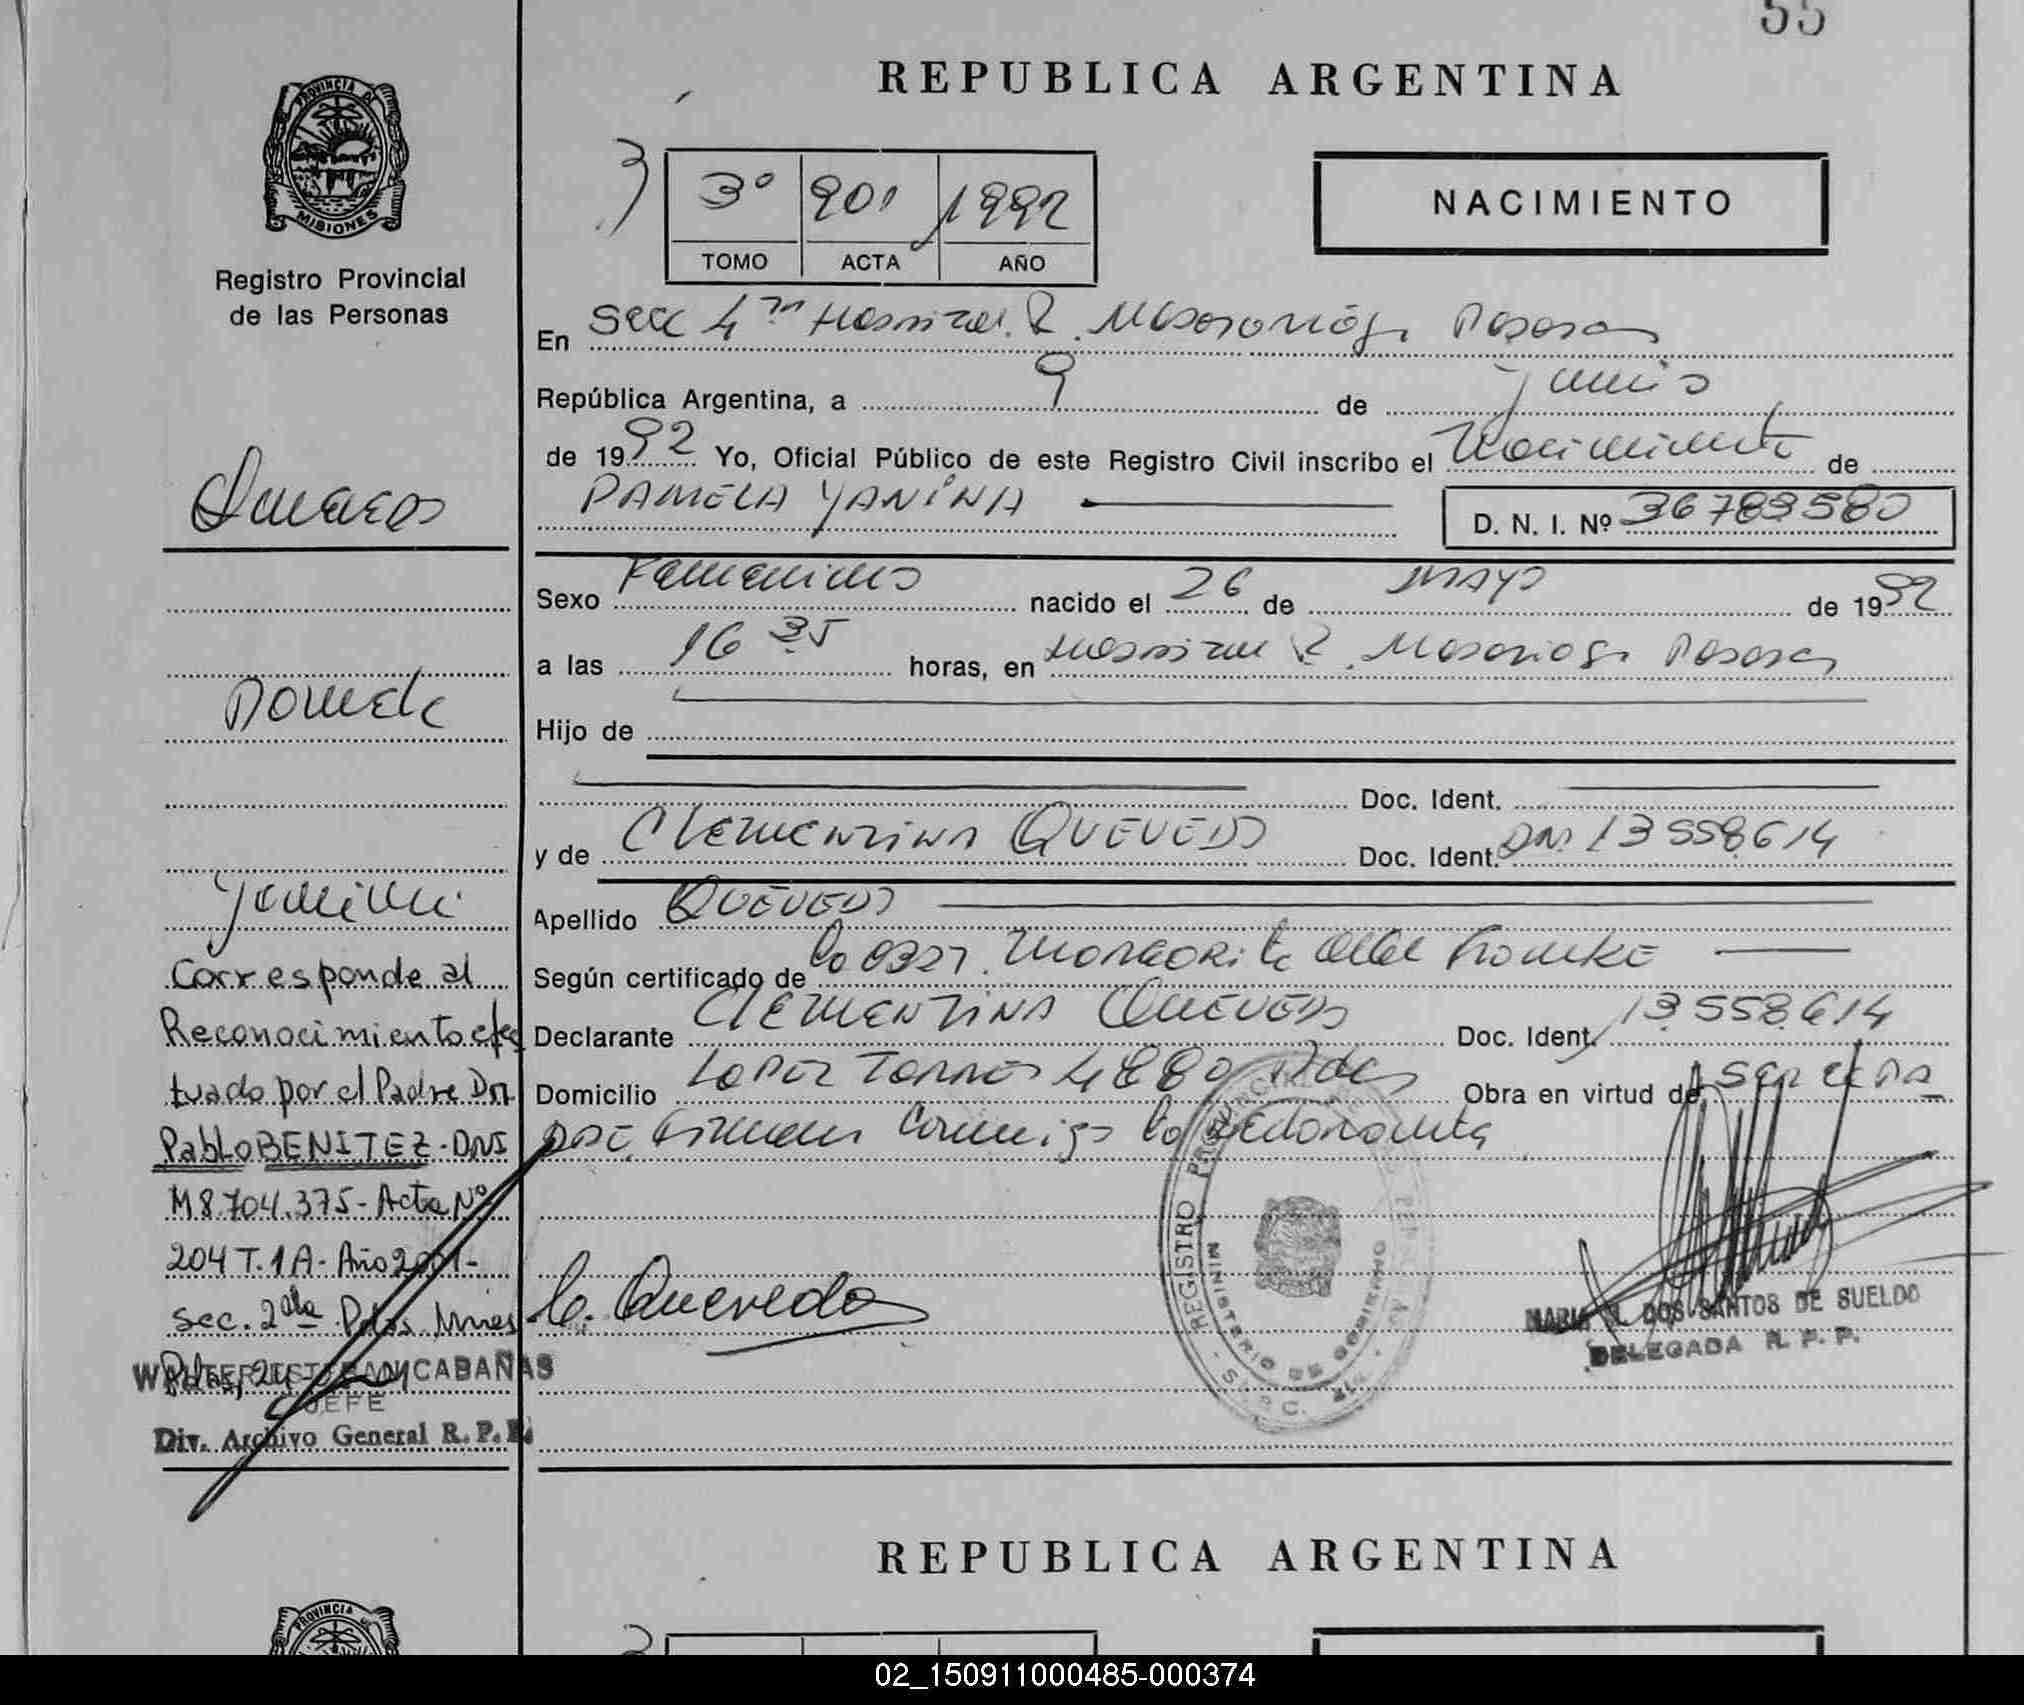 55
REPUBLICA ARGENTINA
PROVINCIA DE
MISIONES
Registro Provincial
de las Personas
3º 901 1992
TOMO ACTA AÑO
NACIMIENTO
En Secc 4ta Hospital R. Madariaga Posadas
República Argentina, a 9 de Junio
de 1992 Yo, Oficial Público de este Registro Civil inscribo el Nacimiento de
PAMELA YANINA
D. N. I. Nº 36783580
Sexo Femenino nacido el 26 de MAYO de 1992
a las 16 35 horas, en Hospital R. Madariaga Posadas
Hijo de
Doc. Ident.
y de CLEMENTINA QUEVEDO Doc. Ident. DNI 13558614
Apellido QUEVEDO
Según certificado de
Declarante CLEMENTINA QUEVEDO Doc. Ident. 13.558.614
Domicilio LOPEZ TORRES 4880 Pdas Obra en virtud de
Firman Conmigo la declarante
C. Quevedo
REGISTRO PROVINCIAL DE LAS PERSONAS
MINISTERIO DE GOBIERNO
MARIA DOS SANTOS DE SUELDO
DELEGADA R. P. P.
Quevedo
Pamela
Yanina
Corresponde al
Reconocimiento efec
tuado por el Padre Dn
Pablo BENITEZ-DNI
M8.704.375-Acta Nº
204 T.1A-Año 2001-
Sec. 2da Pdas. Mnes
WALTER CABAÑAS
JEFE
Div. Archivo General R.P.P.
REPUBLICA ARGENTINA
PROVINCIA
02_150911000485-000374